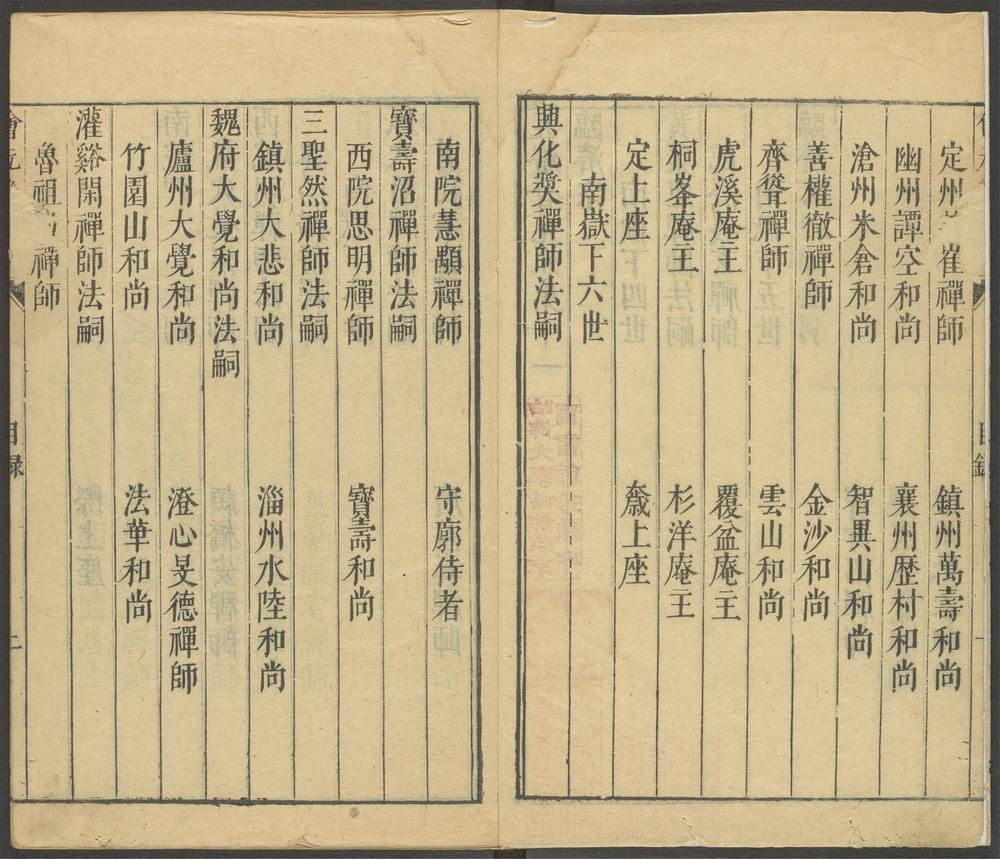 定州崔禪師　鎮州萬壽和尚
幽州譚空和尚　襄州歷村和尚
滄州米倉和尚　智異山和尚
善權徹禪師　金沙和尚
齊聳禪師　雲山和尚
虎溪庵主　覆盆庵主
桐峯庵主　杉洋庵主
定上座　奯上座
南嶽下六世
興化奬禪師法嗣
南院慧顒禪師　守廓侍者
寶壽沼禪師法嗣
西院思明禪師　寶壽和尚
三聖然禪師法嗣
鎮州大悲和尚　淄州水陸和尚
魏府大覺和尚法嗣
廬州大覺和尚　澄心旻德禪師
竹園山和尚　法華和尚
灌谿閑禪師法嗣
魯祖禪師
會元　目錄